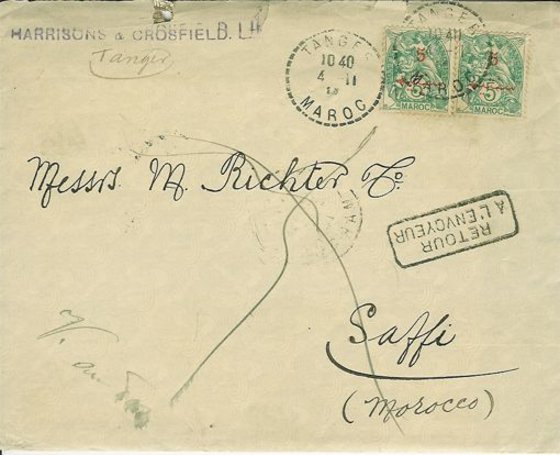 HARRISONS & CROSFIELD. Ld
Tanger
TANGER
10 40
4 - 11
MAROC
TANGER
10 40
MAROC
5
5
MAROC
5
5
MAROC
Messrs. M. Richter & Co.
RETOUR
A L'ENVOYEUR
Saffi
(Morocco)
V. au dos